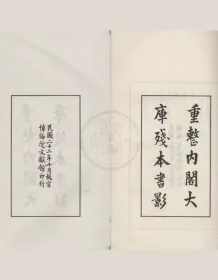 重整內閣大
庫殘本書影
民國二十二年十月故宮
博物院文獻館印行